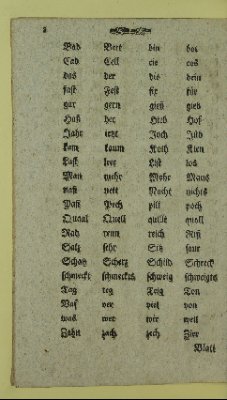 2
Bad Bett bin bos
Cad Cell cie cos
das der die dein
fast Fest fix für
gar gern gieß gieb
Haß her Hub Hof
Jahr jetzt Joch Jüd
kam kaum Koth Kien
Last leer List lock
Man mehr Mohr Maus
naß nett Nacht nichts
Past Pech pill poch
Quaal Quell quillt quoll
Rad renn reich Riß
Salz sehr Sitz saur
Schatz Scherz Schild Schreck
schmeckt schmeckts schweig schweigts
Tag Teig Ton
Vas ver viel von
was wer wir weil
Zahn zach zech Zier
Blatt